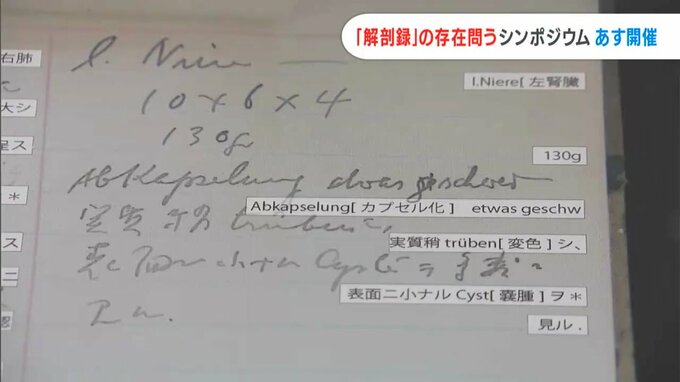 「解剖録」の存在問うシンポジウム あす開催
右肺
l. Niere
l.Niere[ 左腎臓
大シ
10×6×4
130g
130g
足ス
Abkapselung etwas geschwer
Abkapselung[ カプセル化 ] etwas geschw
実質稍 trüben
ス
実質稍 trüben[ 変色 ] シ、
表面ニ小ナル Cyst[ 嚢腫 ] ヲ＊
ニ
見ル .
認